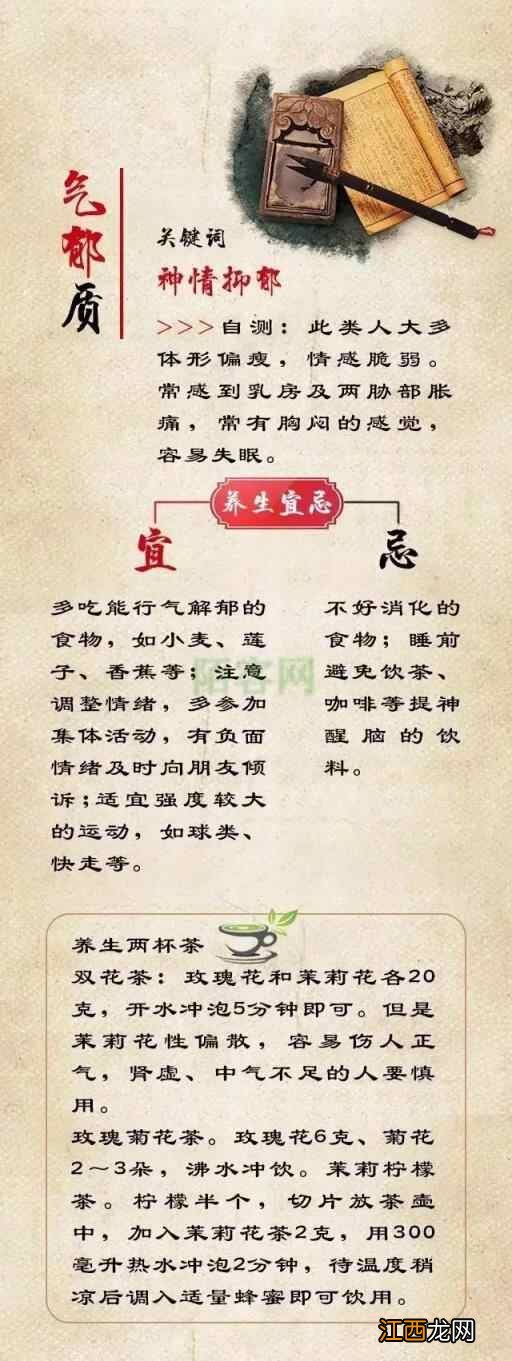 气郁质
关键词
神情抑郁
>>>自测：此类人大多
体形偏瘦，情感脆弱。
常感到乳房及两胁部胀
痛，常有胸闷的感觉，
容易失眠。
养生宜忌
宜
忌
多吃能行气解郁的
食物，如小麦、莲
子、香蕉等；注意
调整情绪，多参加
集体活动，有负面
情绪及时向朋友倾
诉；适宜强度较大
的运动，如球类、
快走等。
不好消化的
食物；睡前
避免饮茶、
咖啡等提神
醒脑的饮
料。
陌客网
养生两杯茶
双花茶：玫瑰花和茉莉花各20
克，开水冲泡5分钟即可。但是
茉莉花性偏散，容易伤人正
气，肾虚、中气不足的人要慎
用。
玫瑰菊花茶。玫瑰花6克、菊花
2～3朵，沸水冲饮。茉莉柠檬
茶。柠檬半个，切片放茶壶
中，加入茉莉花茶2克，用300
毫升热水冲泡2分钟，待温度稍
凉后调入适量蜂蜜即可饮用。
江西龙网